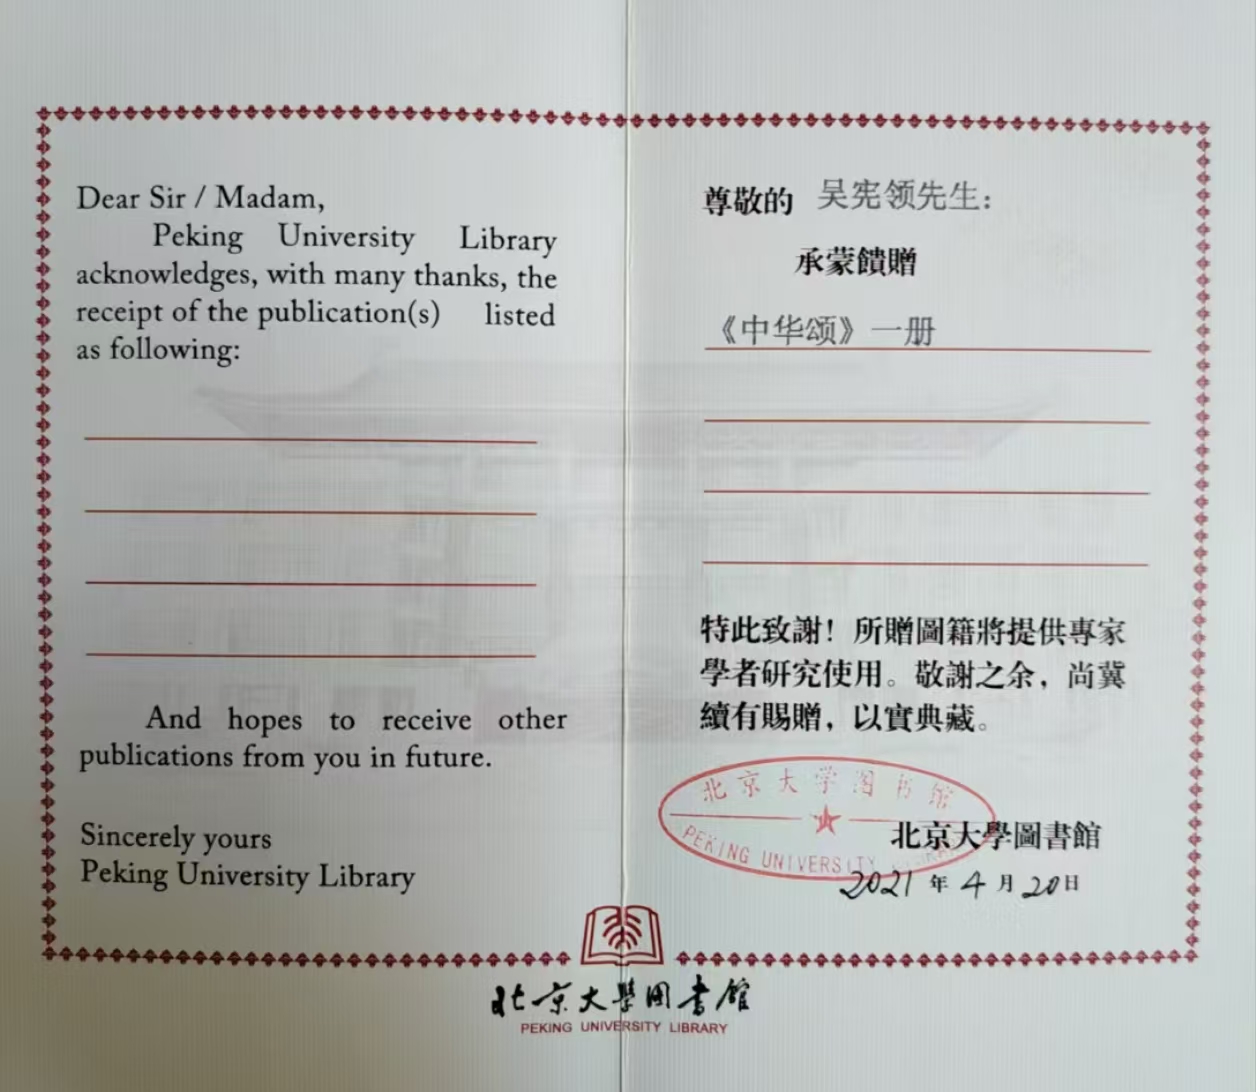 Dear Sir / Madam,
Peking University Library
acknowledges, with many thanks, the
receipt of the publication(s) listed
as following:
And hopes to receive other
publications from you in future.
Sincerely yours
Peking University Library
尊敬的 吴宪领先生:
承蒙饋贈
《中华颂》一册
特此致謝！所贈圖籍將提供專家
學者研究使用。敬謝之余，尚冀
續有賜贈，以實典藏。
北京大学图书馆
PEKING UNIVERSITY LIBRARY
北京大學圖書館
2021 年 4 月 20 日
北京大學圖書館
PEKING UNIVERSITY LIBRARY